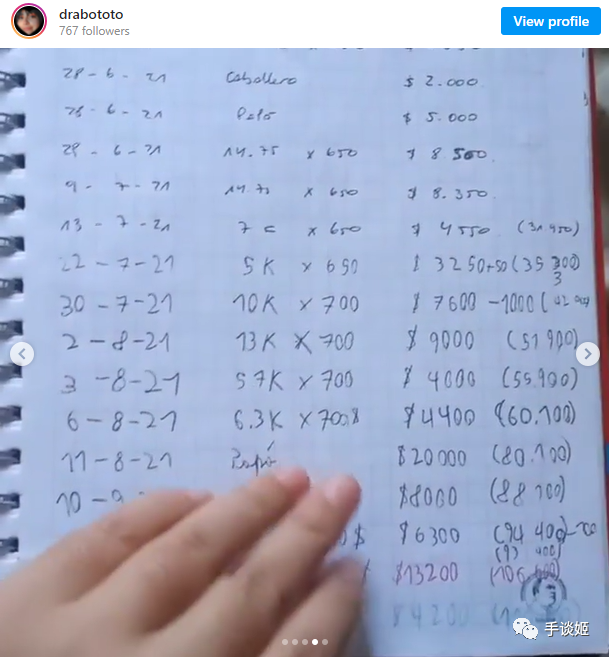 drabototo
767 followers
View profile
28-6-21 Caballero $ 2.000
28-6-21 Pelo $ 5.000
29-6-21 14.75 x 650 $ 8.500
9-7-21 14.75 x 650 $ 8.350
13-7-21 7 c x 650 $ 4550 (31 950)
22-7-21 5K x 650 $ 3250+50 (35 300)
3
30-7-21 10K x 700 $ 7600 -1000 (
2-8-21 13K x 700 $ 9000 (51 900)
3-8-21 57K x 700 $ 4000 (55.900)
6-8-21 6.3K x 700$ $ 4400 (60.100)
11-8-21 $20000 (80.100)
10-9- $8000 (88 100)
0$ $ 6300 (94 400
(93 400)
$13200 (106.600)
$ 4200
手谈姬